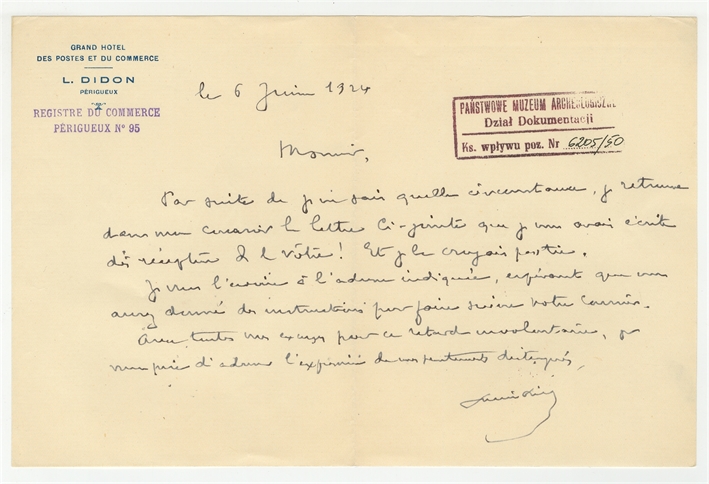 GRAND HOTEL
DES POSTES ET DU COMMERCE
L. DIDON
PÉRIGUEUX
REGISTRE DU COMMERCE
PÉRIGUEUX Nº 95
le 6 Juin 1924
PAŃSTWOWE MUZEUM ARCHEOLOGICZNE
Dział Dokumentacji
Ks. wpływu poz. Nr 6205/50
Monsieur,
Par suite de je ne sais quelle circonstance, je retrouve
dans mon courrier la lettre ci-jointe que je vous avais écrite
dès réception de la vôtre! Et je la croyais partie.
Je vous l'envoie à l'adresse indiquée, espérant que vous
aurez donné des instructions pour faire suivre votre courrier.
Avec toutes mes excuses pour ce retard involontaire, je
vous prie d'agréer l'expression de mes sentiments distingués,